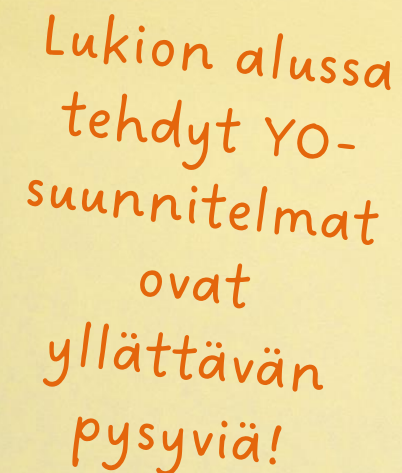 Lukion alussa
tehdyt YO-
suunnitelmat
ovat
yllättävän
pysyviä!